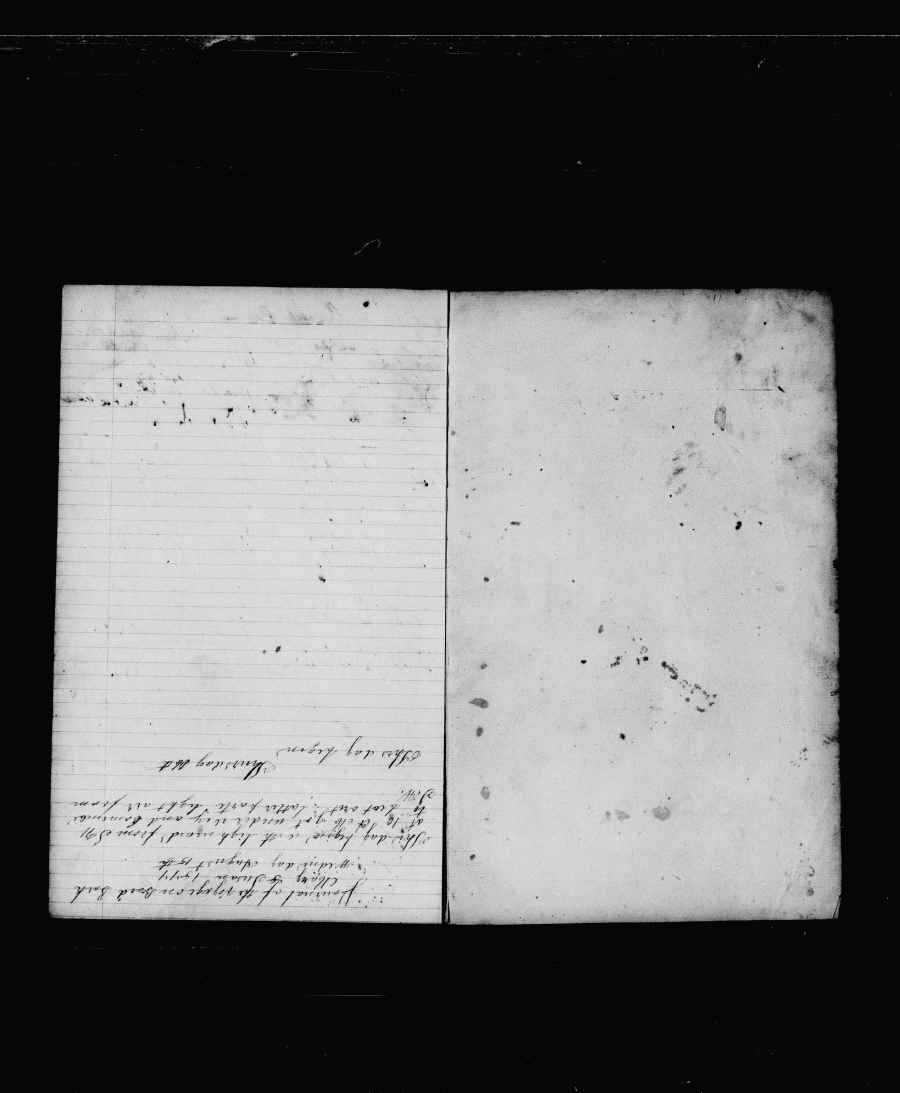 Journal of the voyage on Board Bark
Mary & Susan 1877
Wednesday August 15th
This day begins with light winds from S W
at 10 Oclk got under way and
to beat out latter parts light air from
S.W.
Thursday 16th
This day begins